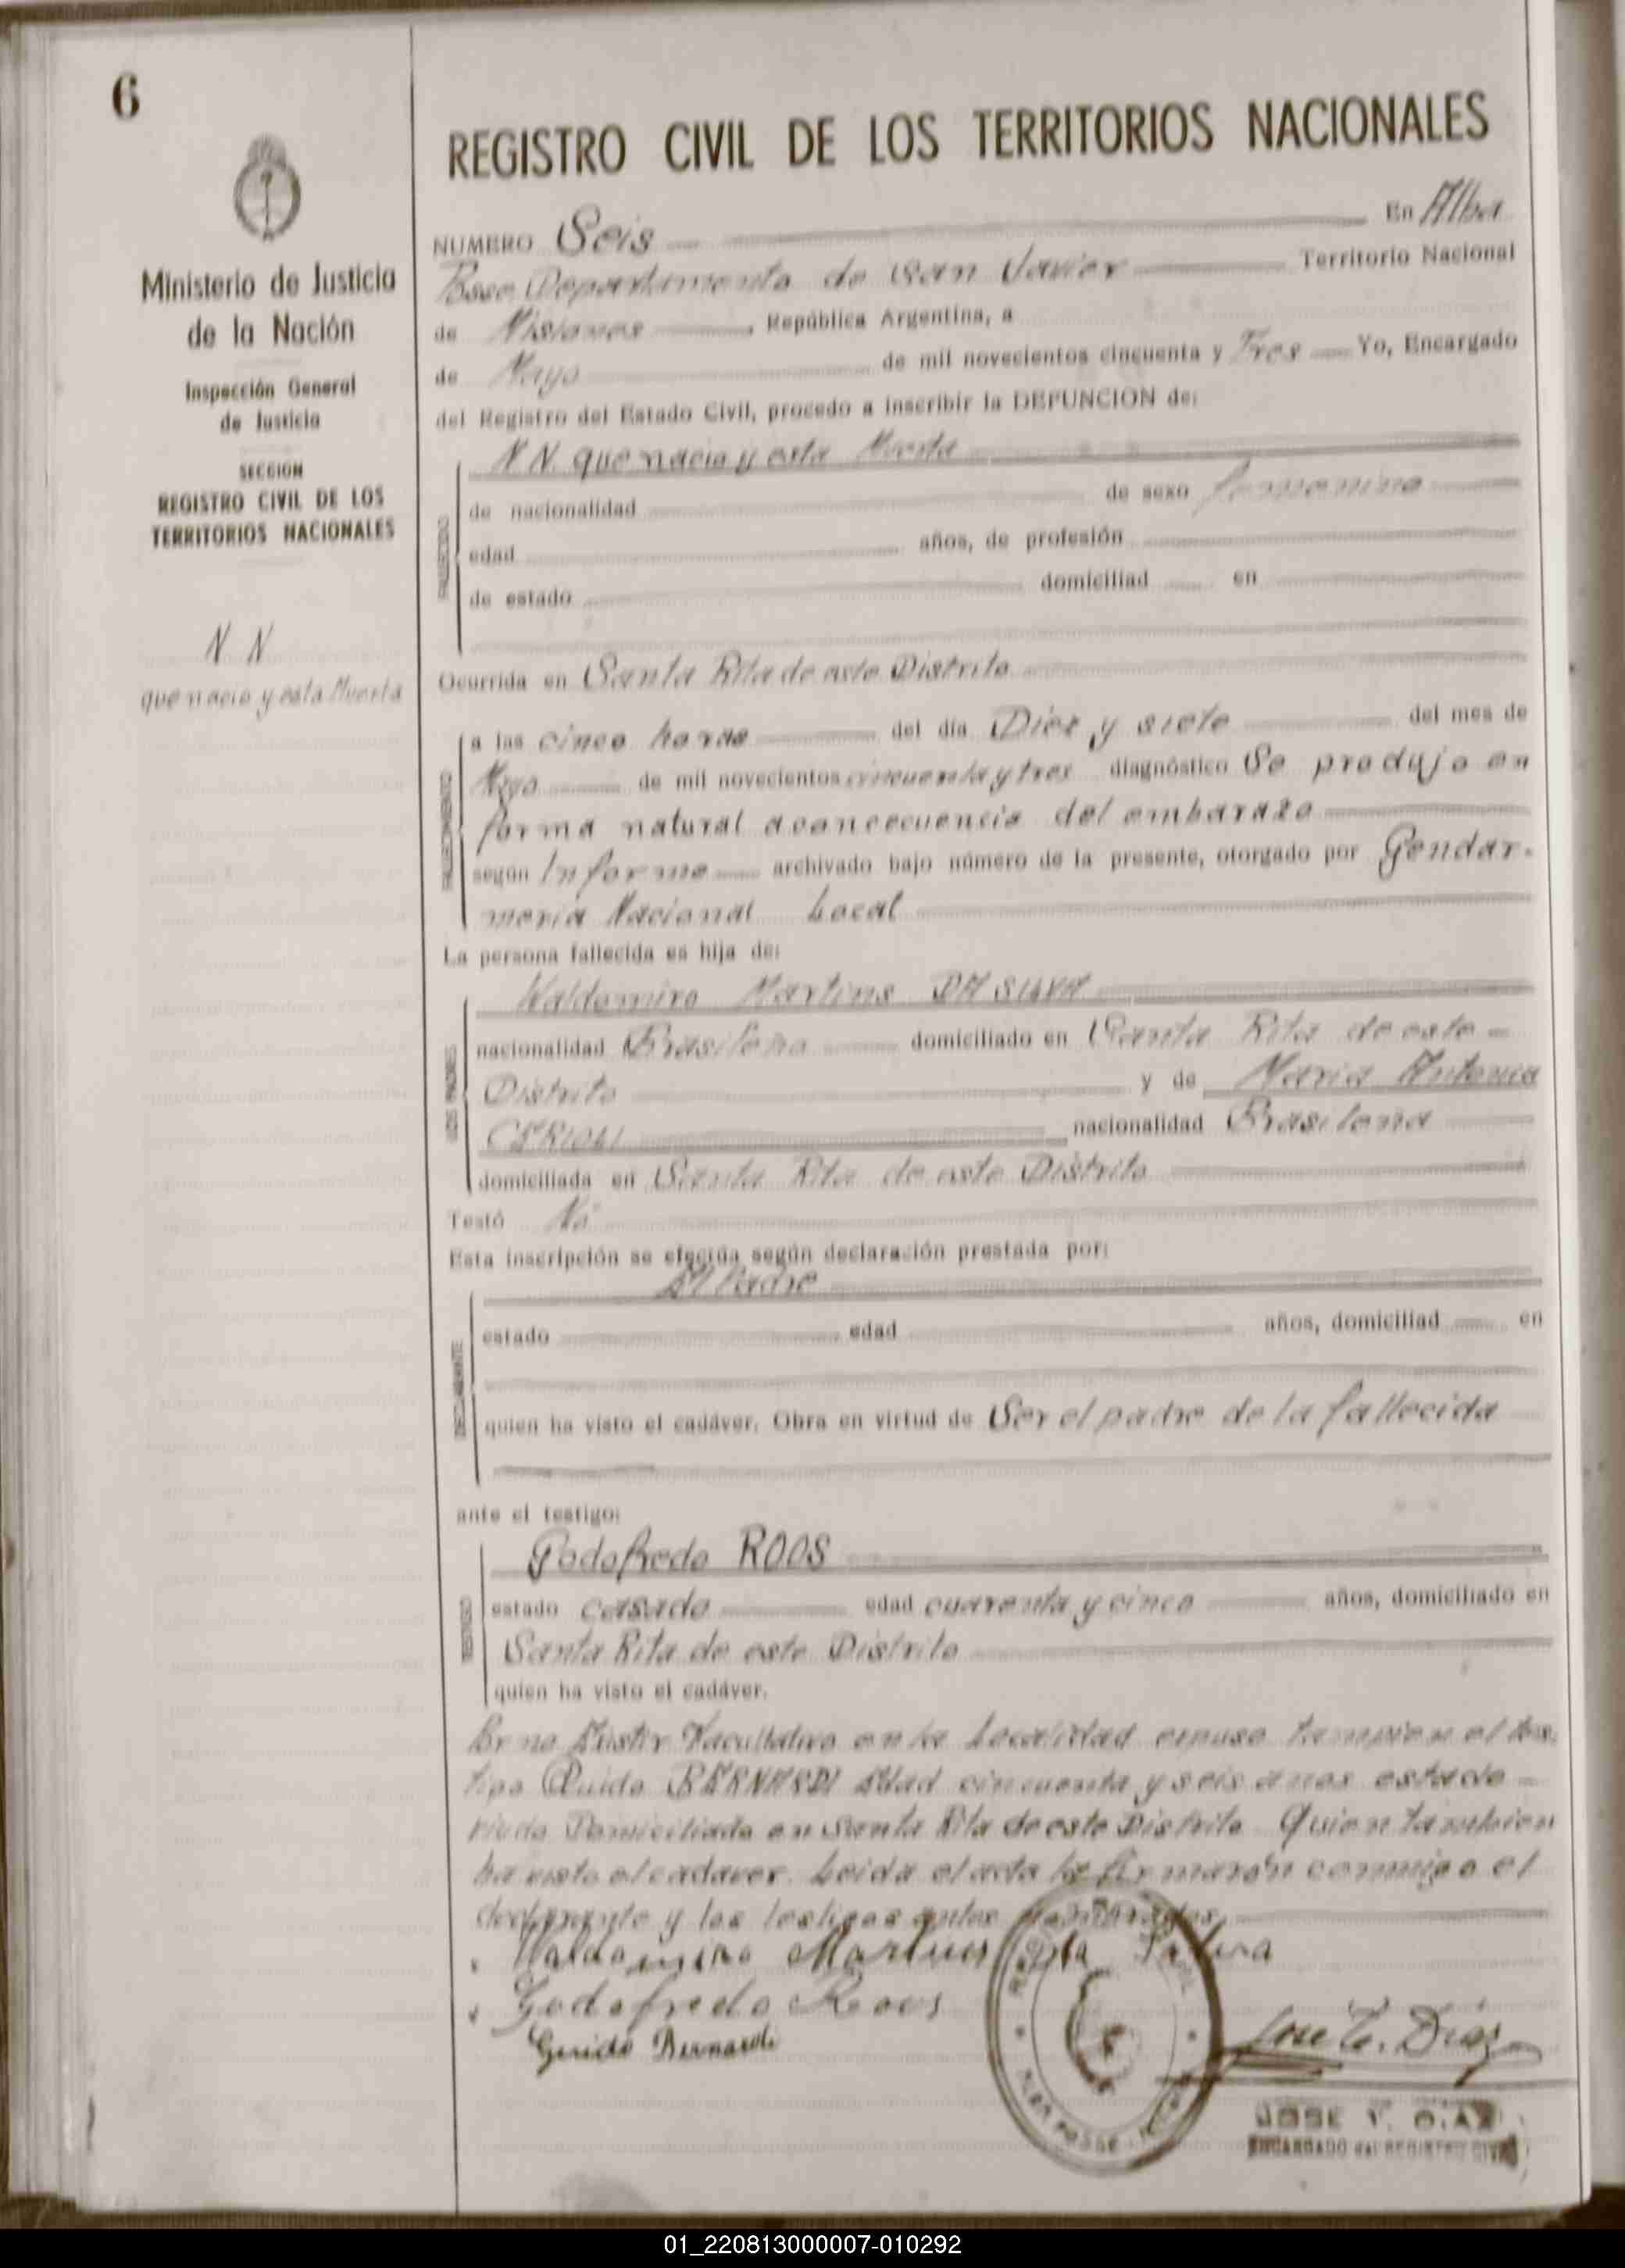 6
Ministerio de Justicia
de la Nación
Inspección General
de Justicia
SECCION
REGISTRO CIVIL DE LOS
TERRITORIOS NACIONALES
N N
que nacio y esta Muerta
REGISTRO CIVIL DE LOS TERRITORIOS NACIONALES
NUMERO Seis En Alba
Posse Departamento de San Javier Territorio Nacional
de Misiones, República Argentina, a
de Mayo de mil novecientos cincuenta y Tres Yo, Encargado
del Registro del Estado Civil, procedo a inscribir la DEFUNCION de:
N N. que nacio y esta Muerta
de nacionalidad de sexo femenino
edad años, de profesión
de estado domiciliad en
Ocurrida en Santa Rita de este Distrito
a las cinco horas del día Diez y siete del mes de
Mayo de mil novecientos cincuenta y tres diagnóstico Se produjo en
forma natural aconcecuencia del embarazo
según Informe archivado bajo número de la presente, otorgado por Gendar-
meria Nacional Local
La persona fallecida es hija de:
Waldomiro Martins DA SILVA
nacionalidad Brasileña domiciliado en Santa Rita de este
Distrito y de Maria Antonia
nacionalidad Brasilena
domiciliada en Santa Rita de este Distrito
Testó No
Esta inscripción se efectúa según declaración prestada por:
El Padre
estado edad años, domiciliad en
quien ha visto el cadáver. Obra en virtud de Ser el padre de la fallecida
ante el testigo:
Godofredo ROOS
estado casado edad cuarenta y cinco años, domiciliado en
Santa Rita de este Distrito
quien ha visto el cadáver.
Por no Existir Facultativo en la Localidad expuso tampien el tes.
tigo Guido BERNARDI Edad cincuenta y seis anos estado
viudo Domiciliado en Santa Rita de este Distrito Quien tambien
ha visto el cadaver. Leida el acta la firmaron conmigo el
declarante y los testigos antes nombrados
Waldomiro Martins da Silva
Godofredo Roos
Guido Bernardi
ALBA POSSE
Jose T. Diaz
JOSE T. DIAZ
ENCARGADO del REGISTRO CIVIL
01_220813000007-010292